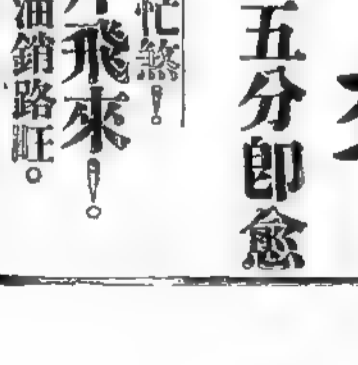 五分即愈
忙煞！
飛來！
油銷路旺。